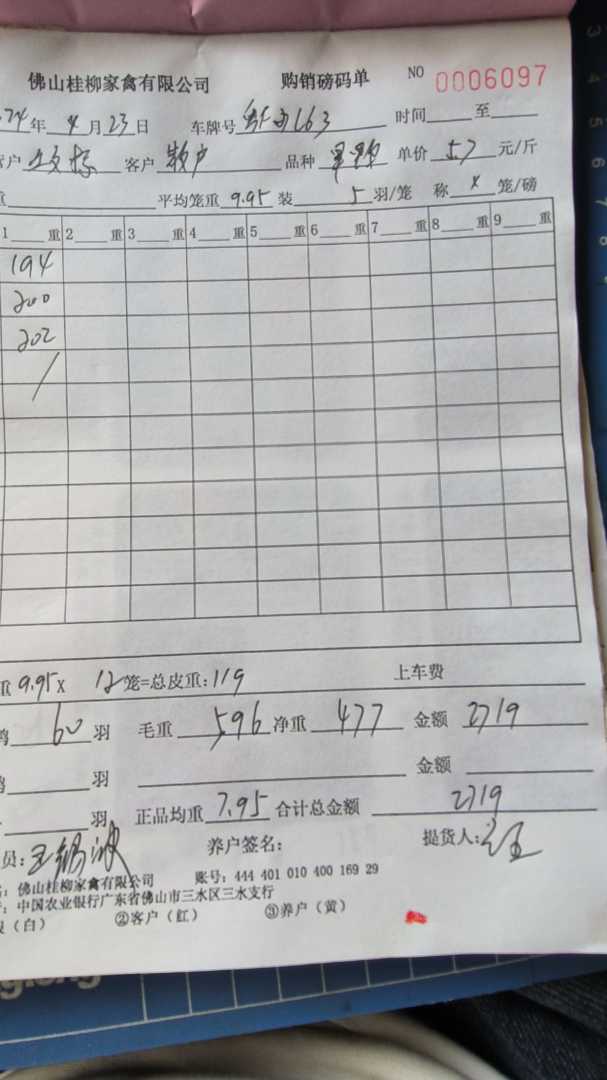 佛山桂柳家禽有限公司 购销磅码单 NO 0006097
24年 4 月 23 日 车牌号 163 时间 至
户 客户 散户 品种 单价 5.7 元/斤
重 平均笼重 9.95 装 5 羽/笼 称 4 笼/磅
1 重 2 重 3 重 4 重 5 重 6 重 7 重 8 重 9 重
194
200
202
重 9.95 X 12 笼=总皮重: 119 上车费
鸡 60 羽 毛重 596 净重 477 金额 2719
鸡 羽 金额
羽 正品均重 7.95 合计总金额 2719
员: 养户签名: 提货人:
佛山桂柳家禽有限公司 账号: 444 401 010 400 169 29
中国农业银行广东省佛山市三水区三水支行
(白) ②客户(红) ③养户(黄)